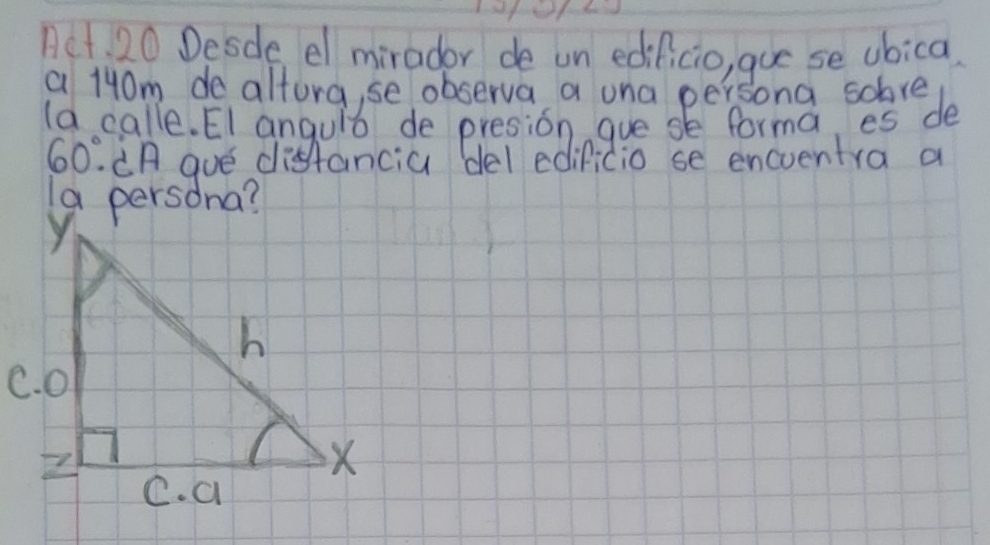 Act.20 Desde el mirador de un edificio, que se ubica
a 140m de altura, se observa a una persona sobre
la calle. El angulo de presión que se forma es de
60°. ¿A qué distancia del edificio se encuentra a
la persona?
Y
h
C.O
Z
X
C.a